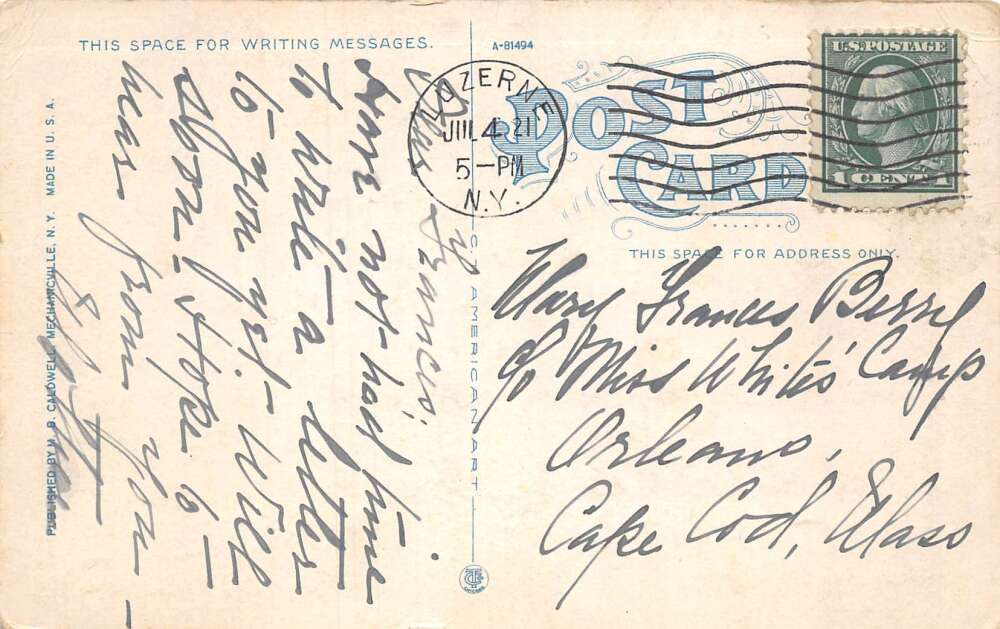 THIS SPACE FOR WRITING MESSAGES.
A-81494
POST
CARD
U.S. POSTAGE
1 CENT 1
LUZERNE
JUL 4 21
5-PM
N.Y.
THIS SPACE FOR ADDRESS ONLY.
Frances,
have not had time
to write a letter
to you yet - will
soon. Hope to
hear from you -
Mary Frances Berry
c/o Miss White's Camp
Orleans,
Cape Cod, Mass
C.T. AMERICAN ART
PUBLISHED BY M. B. CALDWELL, MECHANICVILLE, N. Y. MADE IN U. S. A.